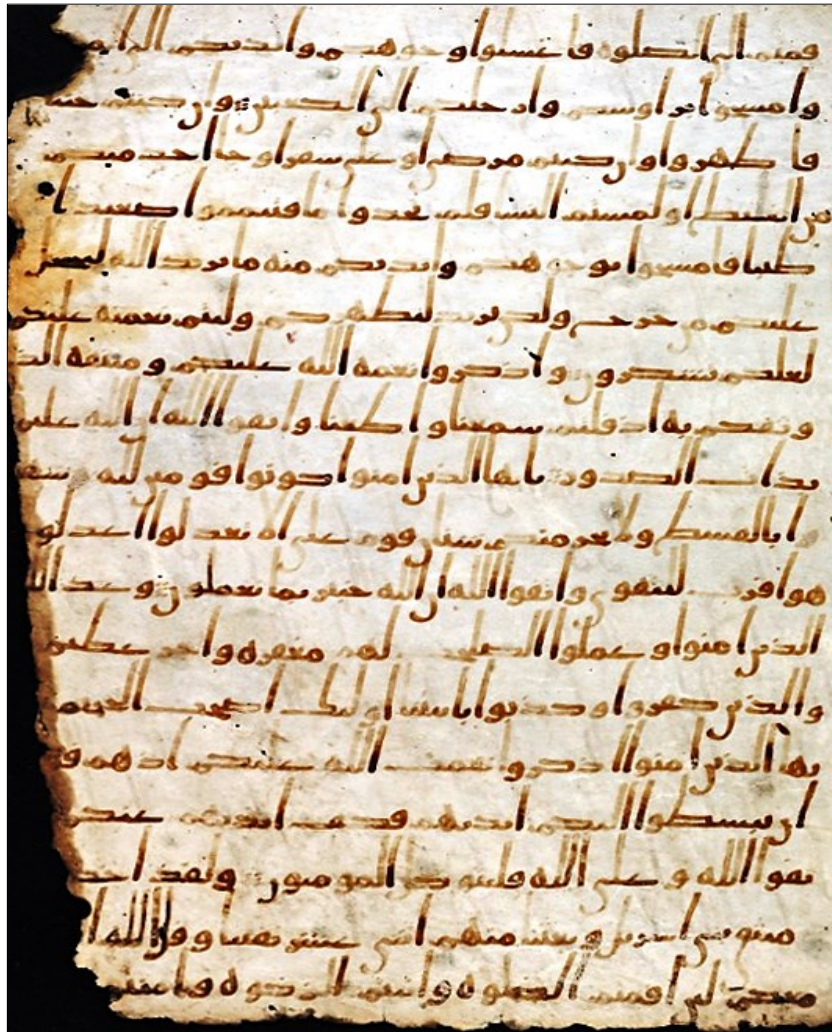 قمتم الى الصلوة فاغسلوا وجوهكم وايديكم الى المر
وامسحوا بروسكم وارجلكم الى الكعبين وان كنتم جنبا
فاطهروا وان كنتم مرضى او على سفر او جا احد منكم
من الغيط او لمستم النسا فلم تجدوا ما فتيمموا صعيدا
طيبا فامسحوا بوجوهكم وايديكم منه ما يريد الله ليجعل
عليكم من حرج ولكن يريد ليطهركم وليتم نعمته عليكم
لعلكم تشكرون واذكروا نعمة الله عليكم وميثقه الذ
وثقكم به اذ قلتم سمعنا واطعنا واتقوا الله ان الله عليم
بذات الصدور يايها الذين امنوا كونوا قومين لله شهد
ا بالقسط ولا يجرمنكم شنان قوم على الا تعدلوا اعدلوا
هو اقرب للتقوى واتقوا الله ان الله خبير بما تعملون وعد الله
الذين امنوا وعملوا الصلحت لهم مغفرة واجر عظيم
والذين كفروا وكذبوا بايتنا اوليك اصحب الجحيم
يها الذين امنوا اذكروا نعمت الله عليكم اذ هم قو
ان يبسطوا اليكم ايديهم فكف ايديهم عنكم
تقوا الله وعلى الله فليتوكل المومنون ولقد اخذ
ميثق بني اسريل وبعثنا منهم اثنى عشر نقيبا وقال الله ا
معكم لين اقمتم الصلوة واتيتم الزكوة وامنتم